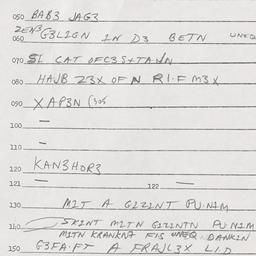 050 BABE JAG3
ZEN3
060 G3LIGN IN D3 BETN UNEQ
070 SL CAT OFC3S+TANN
080 HAJB Z3X OF N RI.F M3X
090 XAP3N (305
100 —
110 —
120 KAN3HOR3
121 122 —
130 MIT A GIZINT PU.NIM
140 SKINT MITN GIZINTN PU NIM
MITN KRANKN FIS UNEQ. DANKIN
150 G3FA.FT A FRAJL3X LID